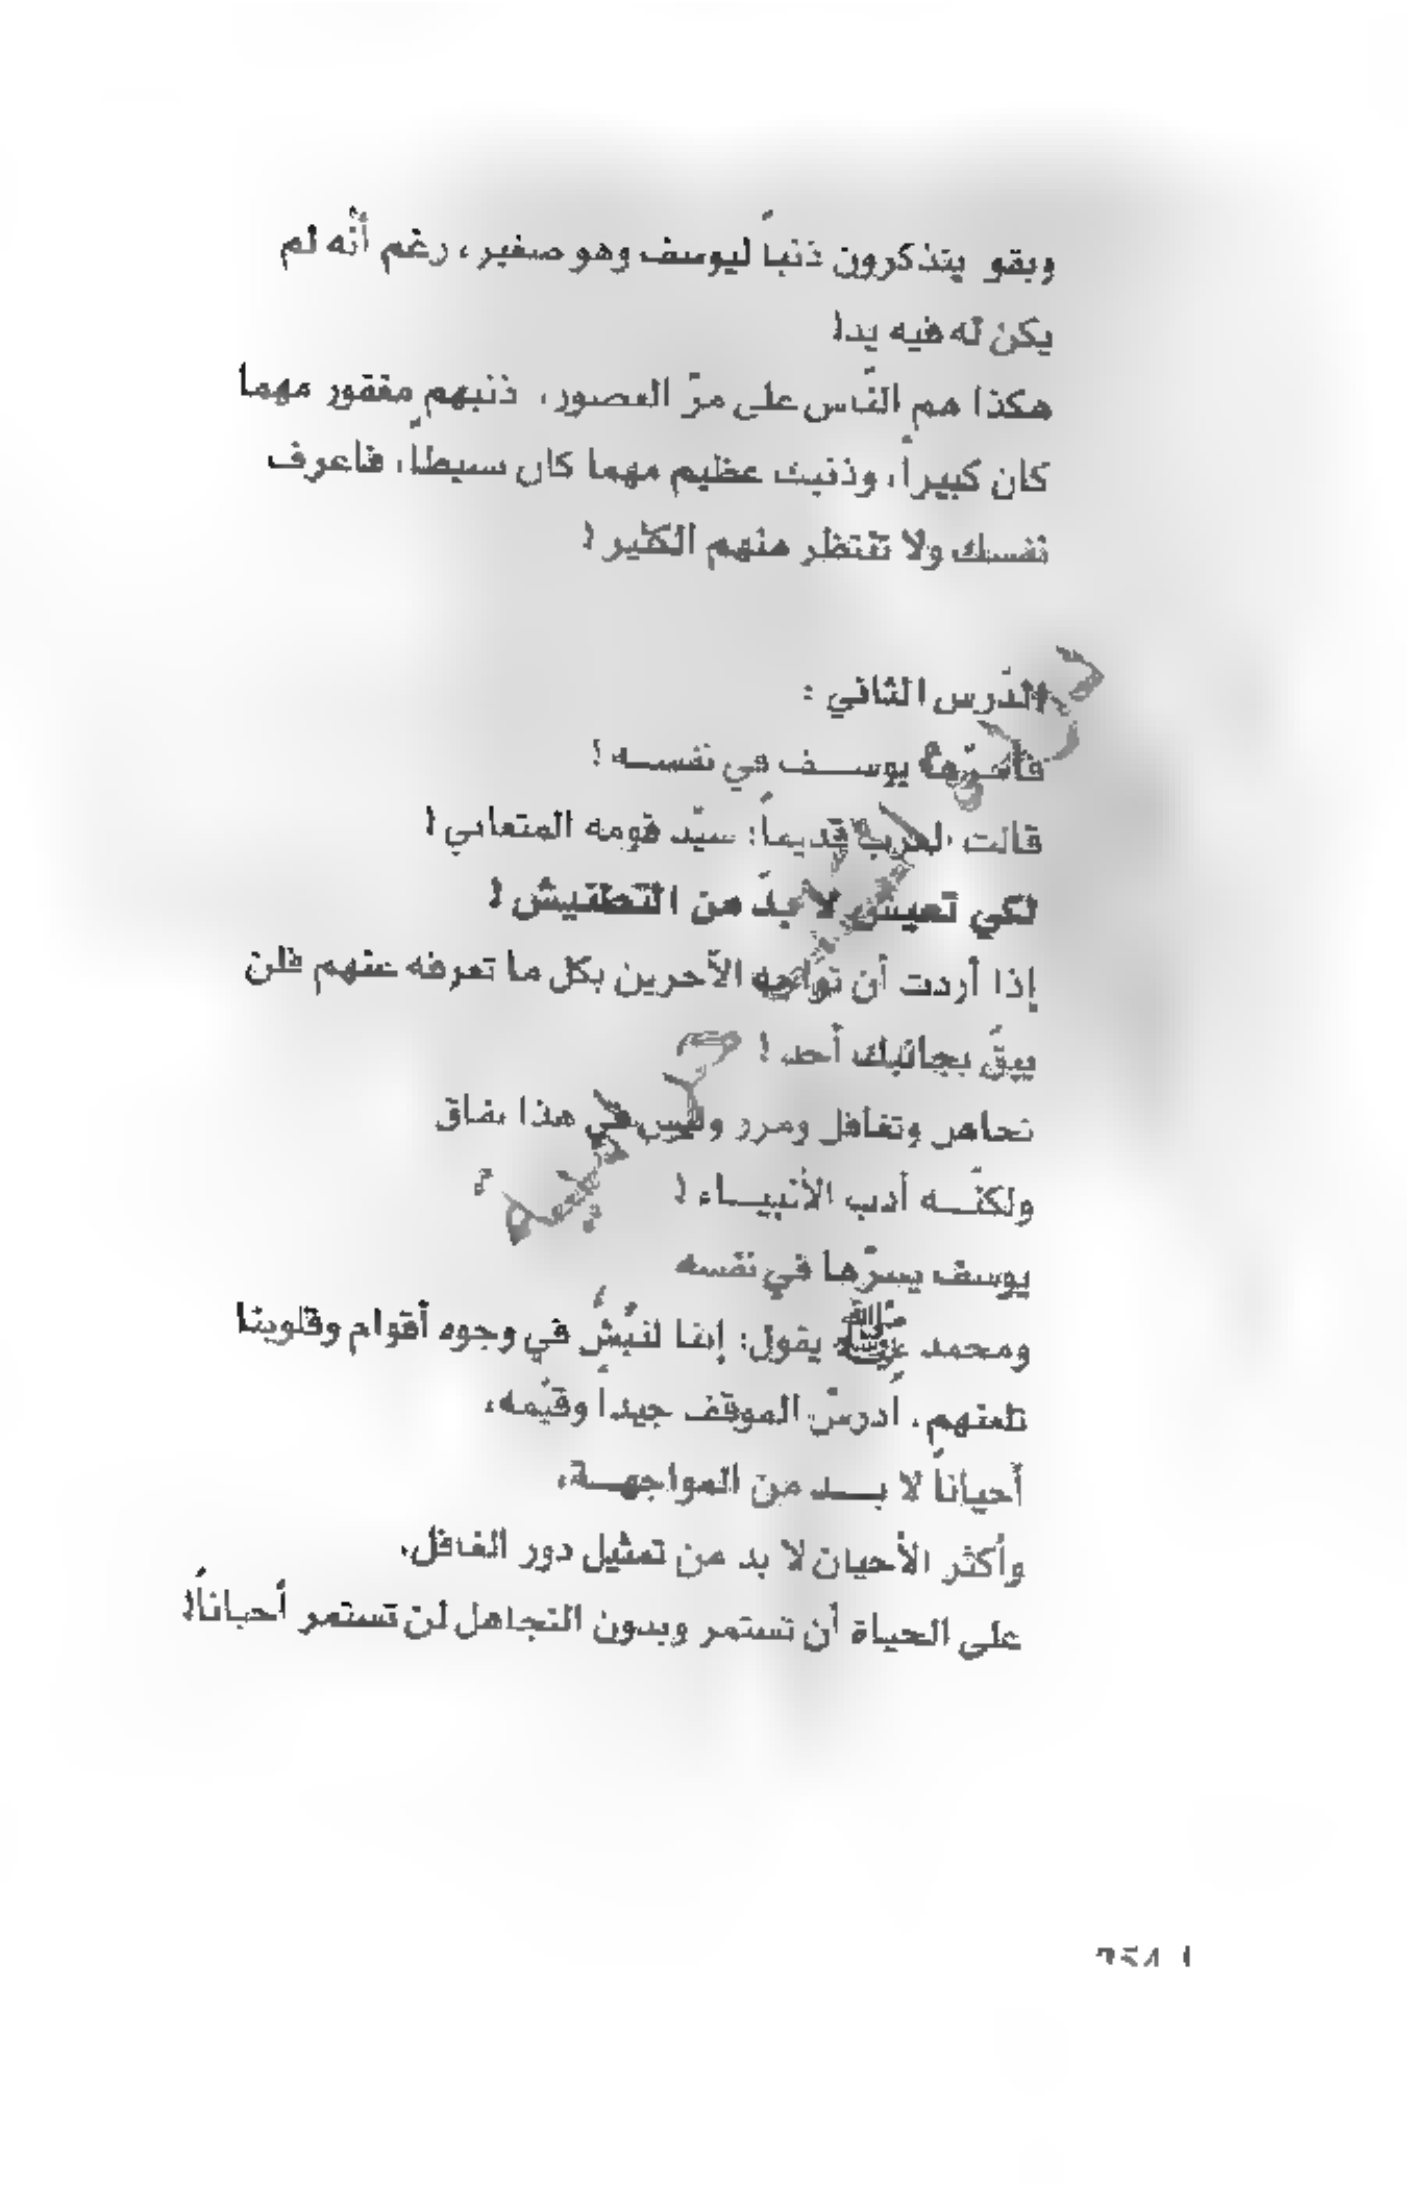 وبقو يتذكرون ذنباً ليوسف وهو صغير، رغم أنّه لم
يكن له فيه يد!
هكذا هم النّاس على مرّ العصور، ذنبهم مغفور مهما
كان كبيراً، وذنبك عظيم مهما كان بسيطاً، فاعرف
نفسك ولا تنتظر منهم الكثير!
الدّرس الثاني :
فأسرّها يوسف في نفسه!
قالت العرب قديماً: سيّد قومه المتغابي!
لكي تعيش لا بدّ من التطنيش!
إذا أردت أن تواجه الآخرين بكل ما تعرفه عنهم فلن
يبقَ بجانبك أحد!
تجاهل وتغافل ومرر وليس في هذا نفاق
ولكنّه أدب الأنبياء!
يوسف يسرّها في نفسه
ومحمد ﷺ يقول: إننا لنبُشُّ في وجوه أقوام وقلوبنا
تلعنهم، اُدرسْ الموقف جيداً وقيّمه،
أحياناً لا بد من المواجهة،
وأكثر الأحيان لا بد من تمثيل دور الغافل،
على الحياة أن تستمر وبدون التجاهل لن تستمر أحياناً!